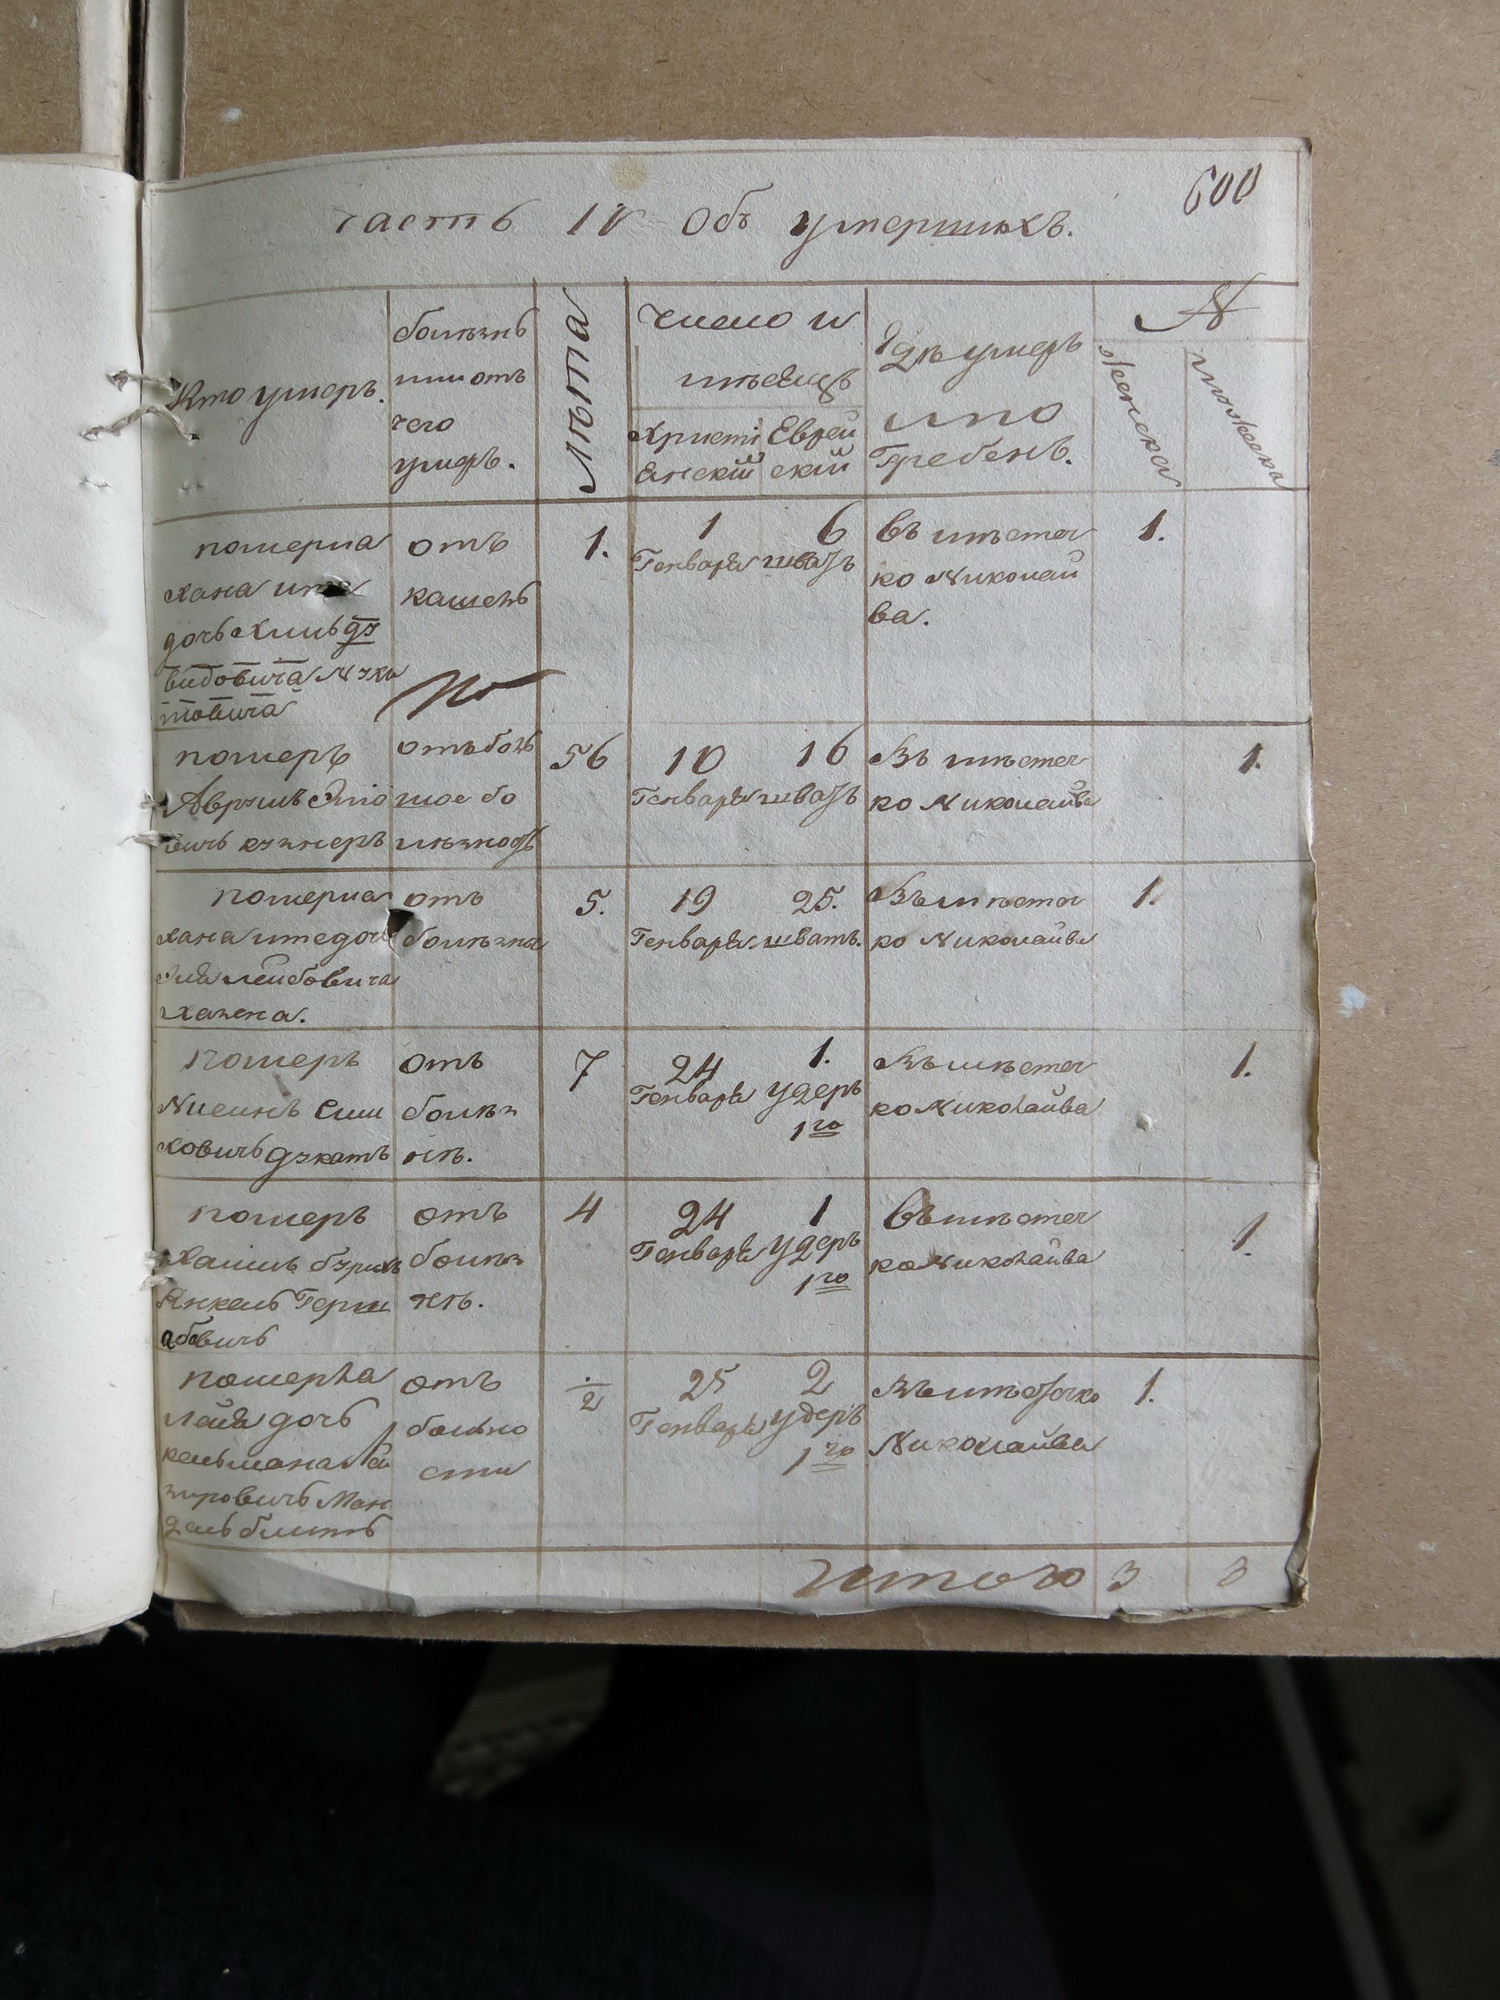 600
часть IV Объ умершыхъ.
Кто умеръ.
болѣзнь
или отъ
чего
умеръ.
Лѣта
число и
мѣсяцъ
Христі
Евреи
янскій
скій
Гдѣ умеръ
и по
Гребенъ.
№
женска
мужеска
померла
Хана
дочь
видовича
товича
отъ
кашель
1.
1
6
Генваря шватъ
въ мѣстеч
ко Николай
ва.
1.
померъ
отъ боль
шое бо
лѣзнодь
56
10
16
Генваря шватъ
Въ мѣстеч
ко Николайва
1.
померла
Хана ите доч
Эля Лейбовича
Хазена.
отъ
болѣзна
5.
19
25.
Генваря шватъ.
Въ мѣстеч
ко Николайва
1.
померъ
Нисинъ Сим
ховичъ
отъ
болѣз
нѣ.
7
24
1.
Генваря удеръ
1го
Въ мѣстеч
ко Николайва
1.
померъ
Хаимъ
Янкель Герш
абовичъ
отъ
болѣз
нѣ.
4
24
1
Генваря удеръ
1го
Въ мѣстеч
ко Николайва
1.
померла
Лейя дочь
Кельмана Лей
зировичъ Ман
дельблитъ
отъ
больно
сти
2
25
2
Генваря удеръ
1го
Въ мѣстечко
Николайва
1.
Итого 3 3